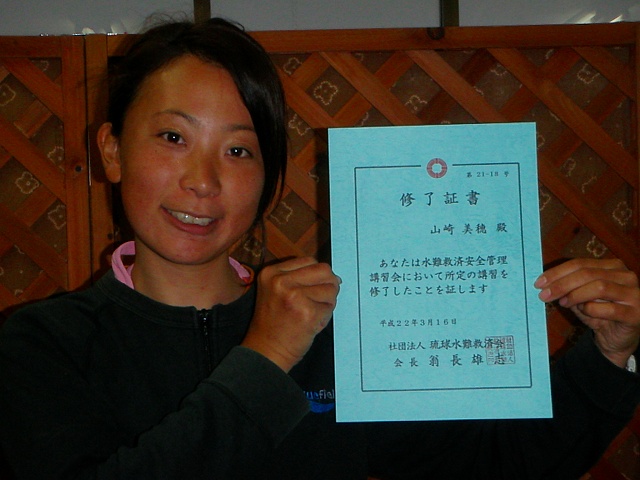 第21-18号
修了証書
山崎 美穂 殿
あなたは水難救済安全管理
講習会において所定の講習を
修了したことを証します
平成22年3月16日
社団法人 琉球水難救済会
会長 翁長雄志